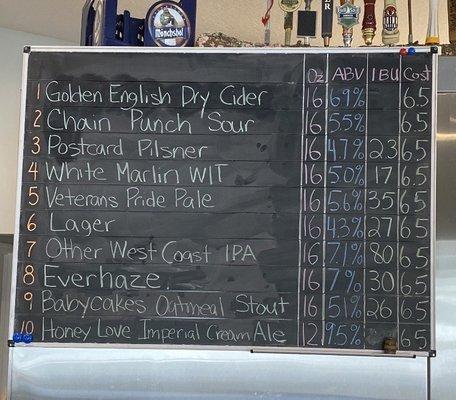 Mönchshof
Oz ABV IBU Cost
1 Golden English Dry Cider 16 6.9% 6.5
2 Chain Punch Sour 16 5.5% 6.5
3 Postcard Pilsner 16 4.7% 23 6.5
4 White Marlin WIT 16 5.0% 17 6.5
5 Veterans Pride Pale 16 5.6% 35 6.5
6 Lager 16 4.3% 27 6.5
7 Other West Coast IPA 16 7.1% 80 6.5
8 Everhaze 16 7% 30 6.5
9 Babycakes Oatmeal Stout 16 5.1% 26 6.5
10 Honey Love Imperial Cream Ale 12 9.5% 6.5